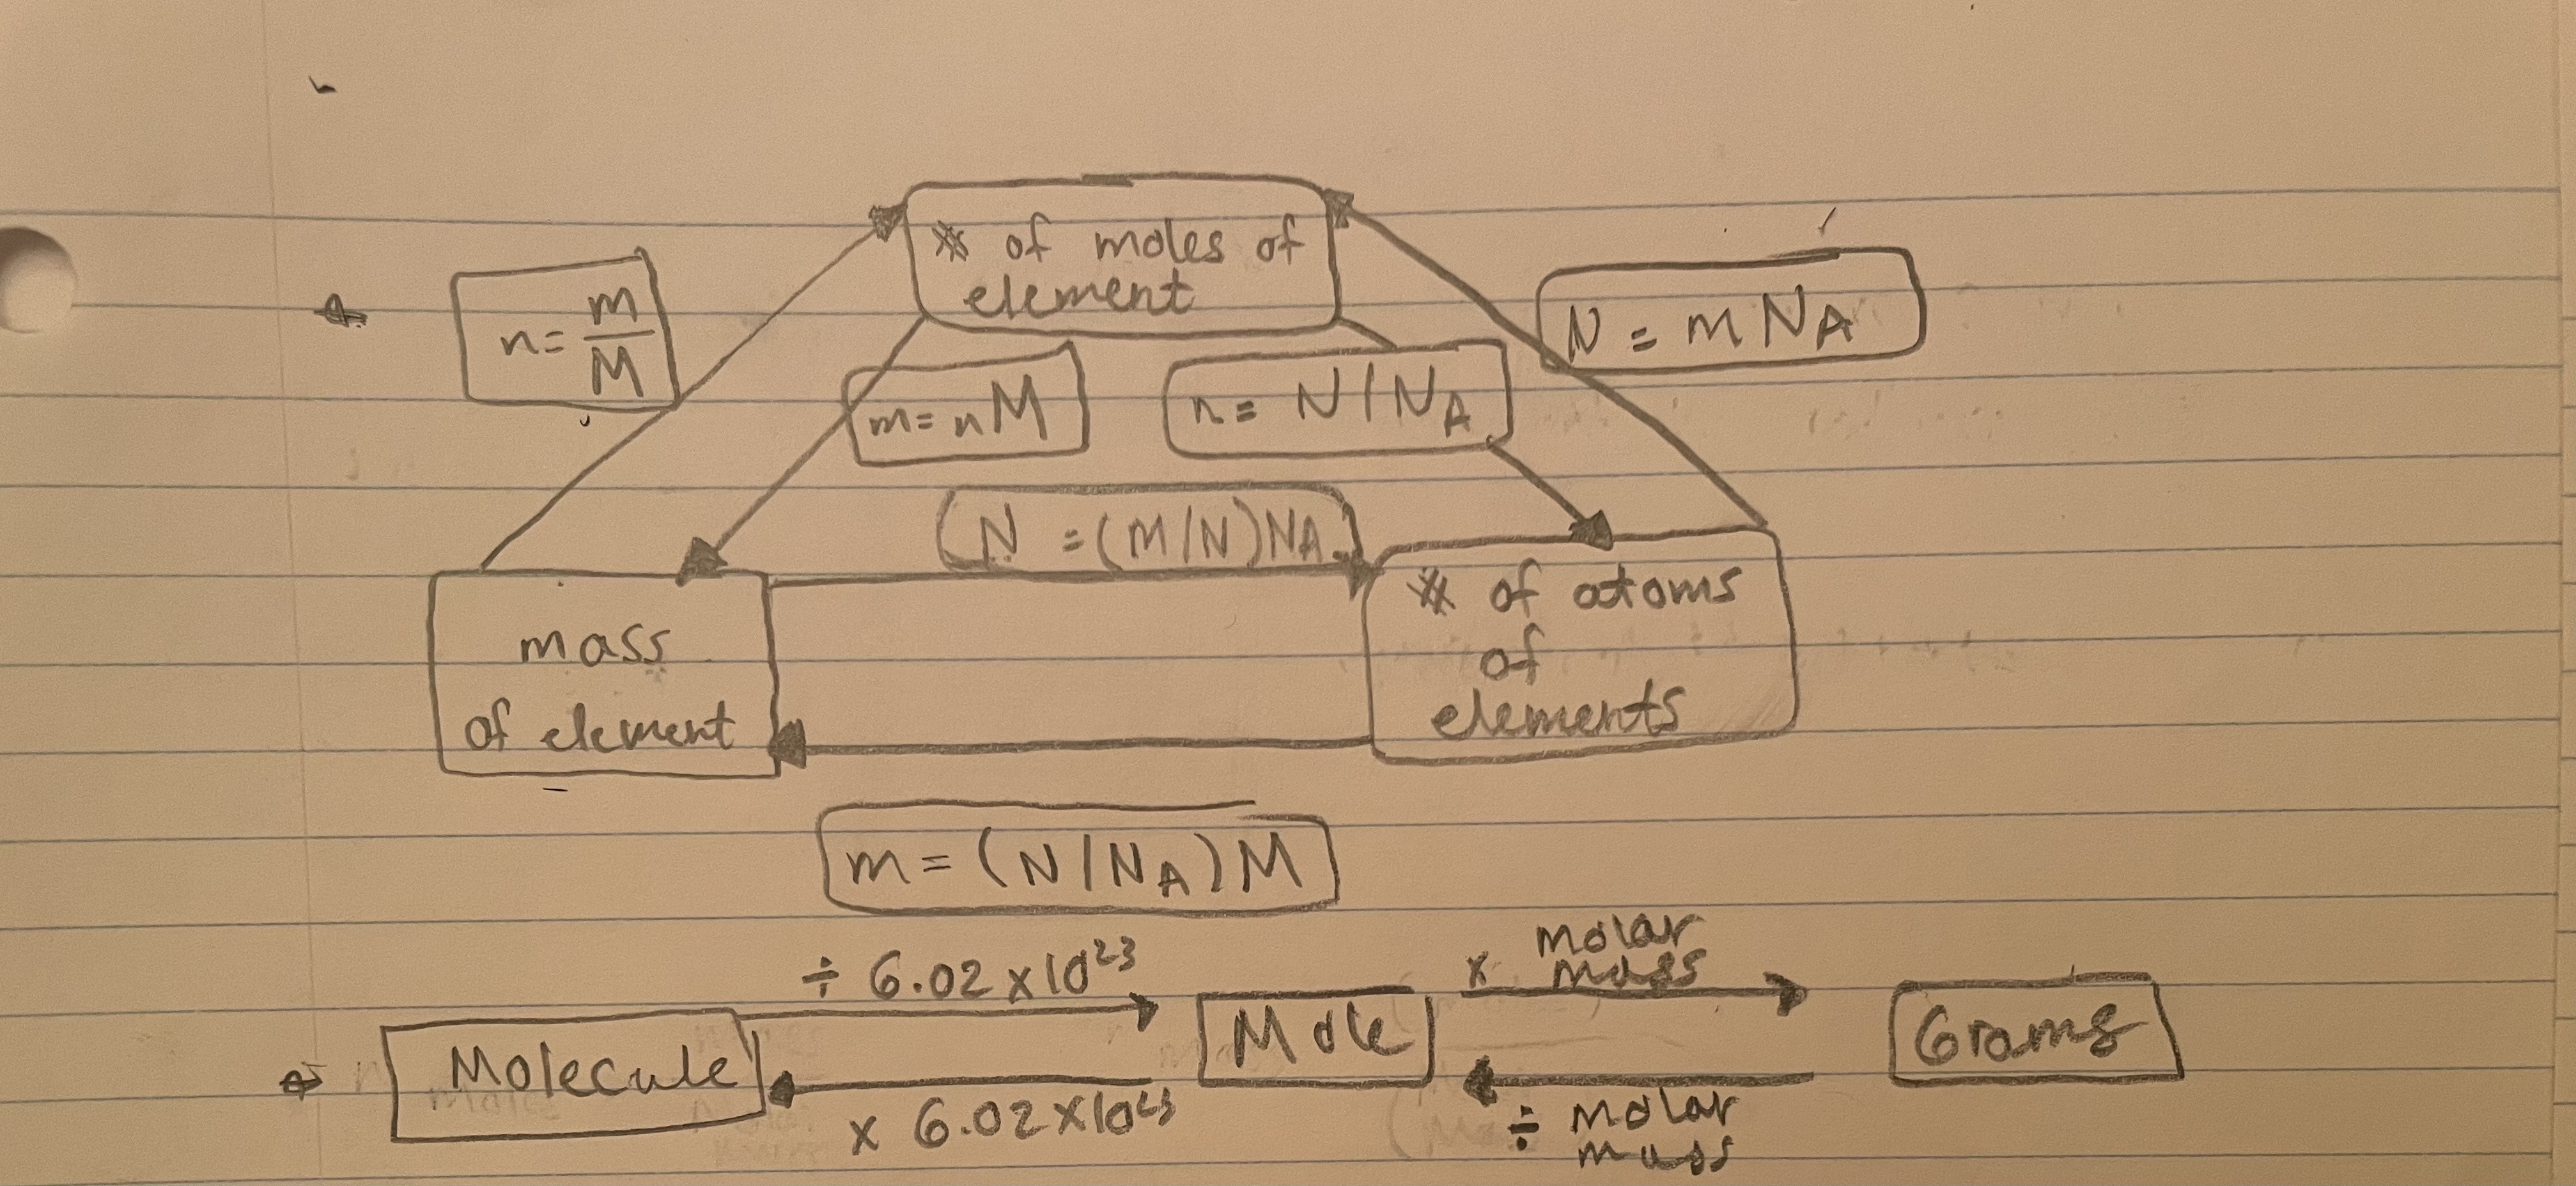 # of moles of
element
n = m/M
N = m NA
m = nM
n = N/NA
N = (M/N)NA
mass
of element
# of atoms
of
elements
m = (N/NA)M
÷ 6.02 x 10²³
x molar
mass
Molecule
Mole
Grams
x 6.02 x 10²³
÷ molar
mass